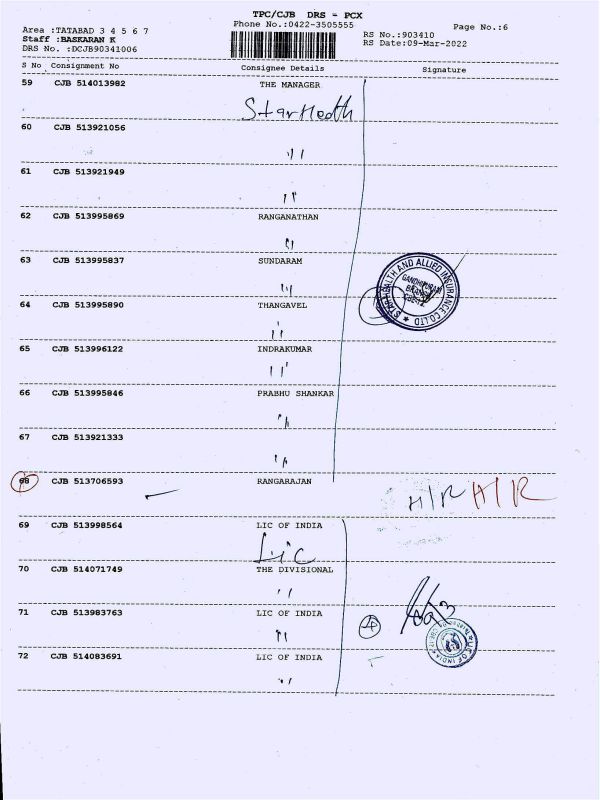 TPC/CJB DRS - PCX
Area :TATABAD 3 4 5 6 7
Phone No.:0422-3505555
Page No.:6
Staff :BASKARAN K
RS No.:903410
DRS No. :DCJB90341006
RS Date:09-Mar-2022
S No Consignment No Consignee Details Signature
59 CJB 514013982 THE MANAGER
Star Health
60 CJB 513921056
"
61 CJB 513921949
"
62 CJB 513995869 RANGANATHAN
"
63 CJB 513995837 SUNDARAM
"
STAR HEALTH AND ALLIED INSURANCE CO LTD
64 CJB 513995890 THANGAVEL
"
65 CJB 513996122 INDRAKUMAR
"
66 CJB 513995846 PRABHU SHANKAR
"
67 CJB 513921333
"
68 CJB 513706593 RANGARAJAN
H/R H/R
69 CJB 513998564 LIC OF INDIA
Lic
70 CJB 514071749 THE DIVISIONAL
"
71 CJB 513983763 LIC OF INDIA
"
4
72 CJB 514083691 LIC OF INDIA
"